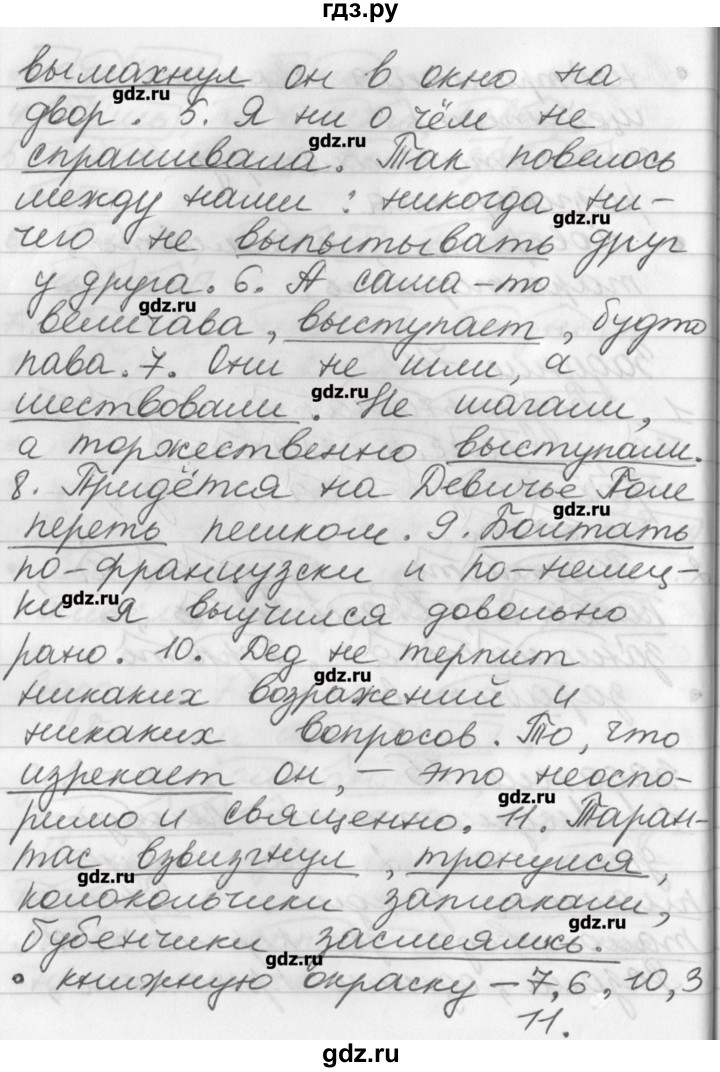 гдз.ру
вымахнул он в окно на
gdz.ru
двор. 5. Я ни о чём не
gdz.ru
спрашивала. Так повелось
между нами: никогда ни-
gdz.ru
чего не выпытывать друг
у друга. 6. А сама-то
gdz.ru
величава, выступает, будто
пава. 7. Они не шли, а
gdz.ru
шествовали. Не шагали,
а торжественно выступали.
8. Придётся на Девичье Поле
gdz.ru
переть пешком. 9. Болтать
по-французски и по-немец-
gdz.ru
ки я выучился довольно
рано. 10. Дед не терпит
gdz.ru
никаких возражений и
никаких вопросов. То, что
изрекает он, – это неоспо-
gdz.ru
римо и священно. 11. Таран-
тас взвизгнул, тронулся,
gdz.ru
колокольчики заплакали,
gdz.ru
бубенчики засмеялись.
gdz.ru
• книжную окраску – 7, 6, 10, 3
11.
gdz.ru